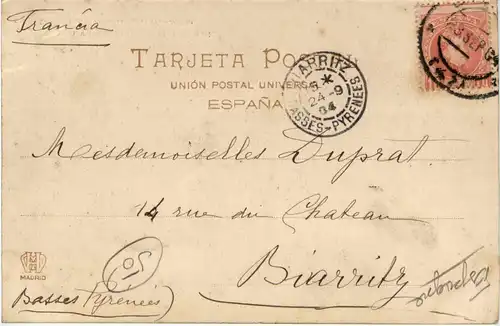 Francia
TARJETA POSTAL
UNIÓN POSTAL UNIVERSAL
ESPAÑA
BIARRITZ
24-9
04
BASSES-PYRENEES
Mesdemoiselles Duprat
14 rue du Chateau
Biarritz
MADRID
Basses Pyrénées)